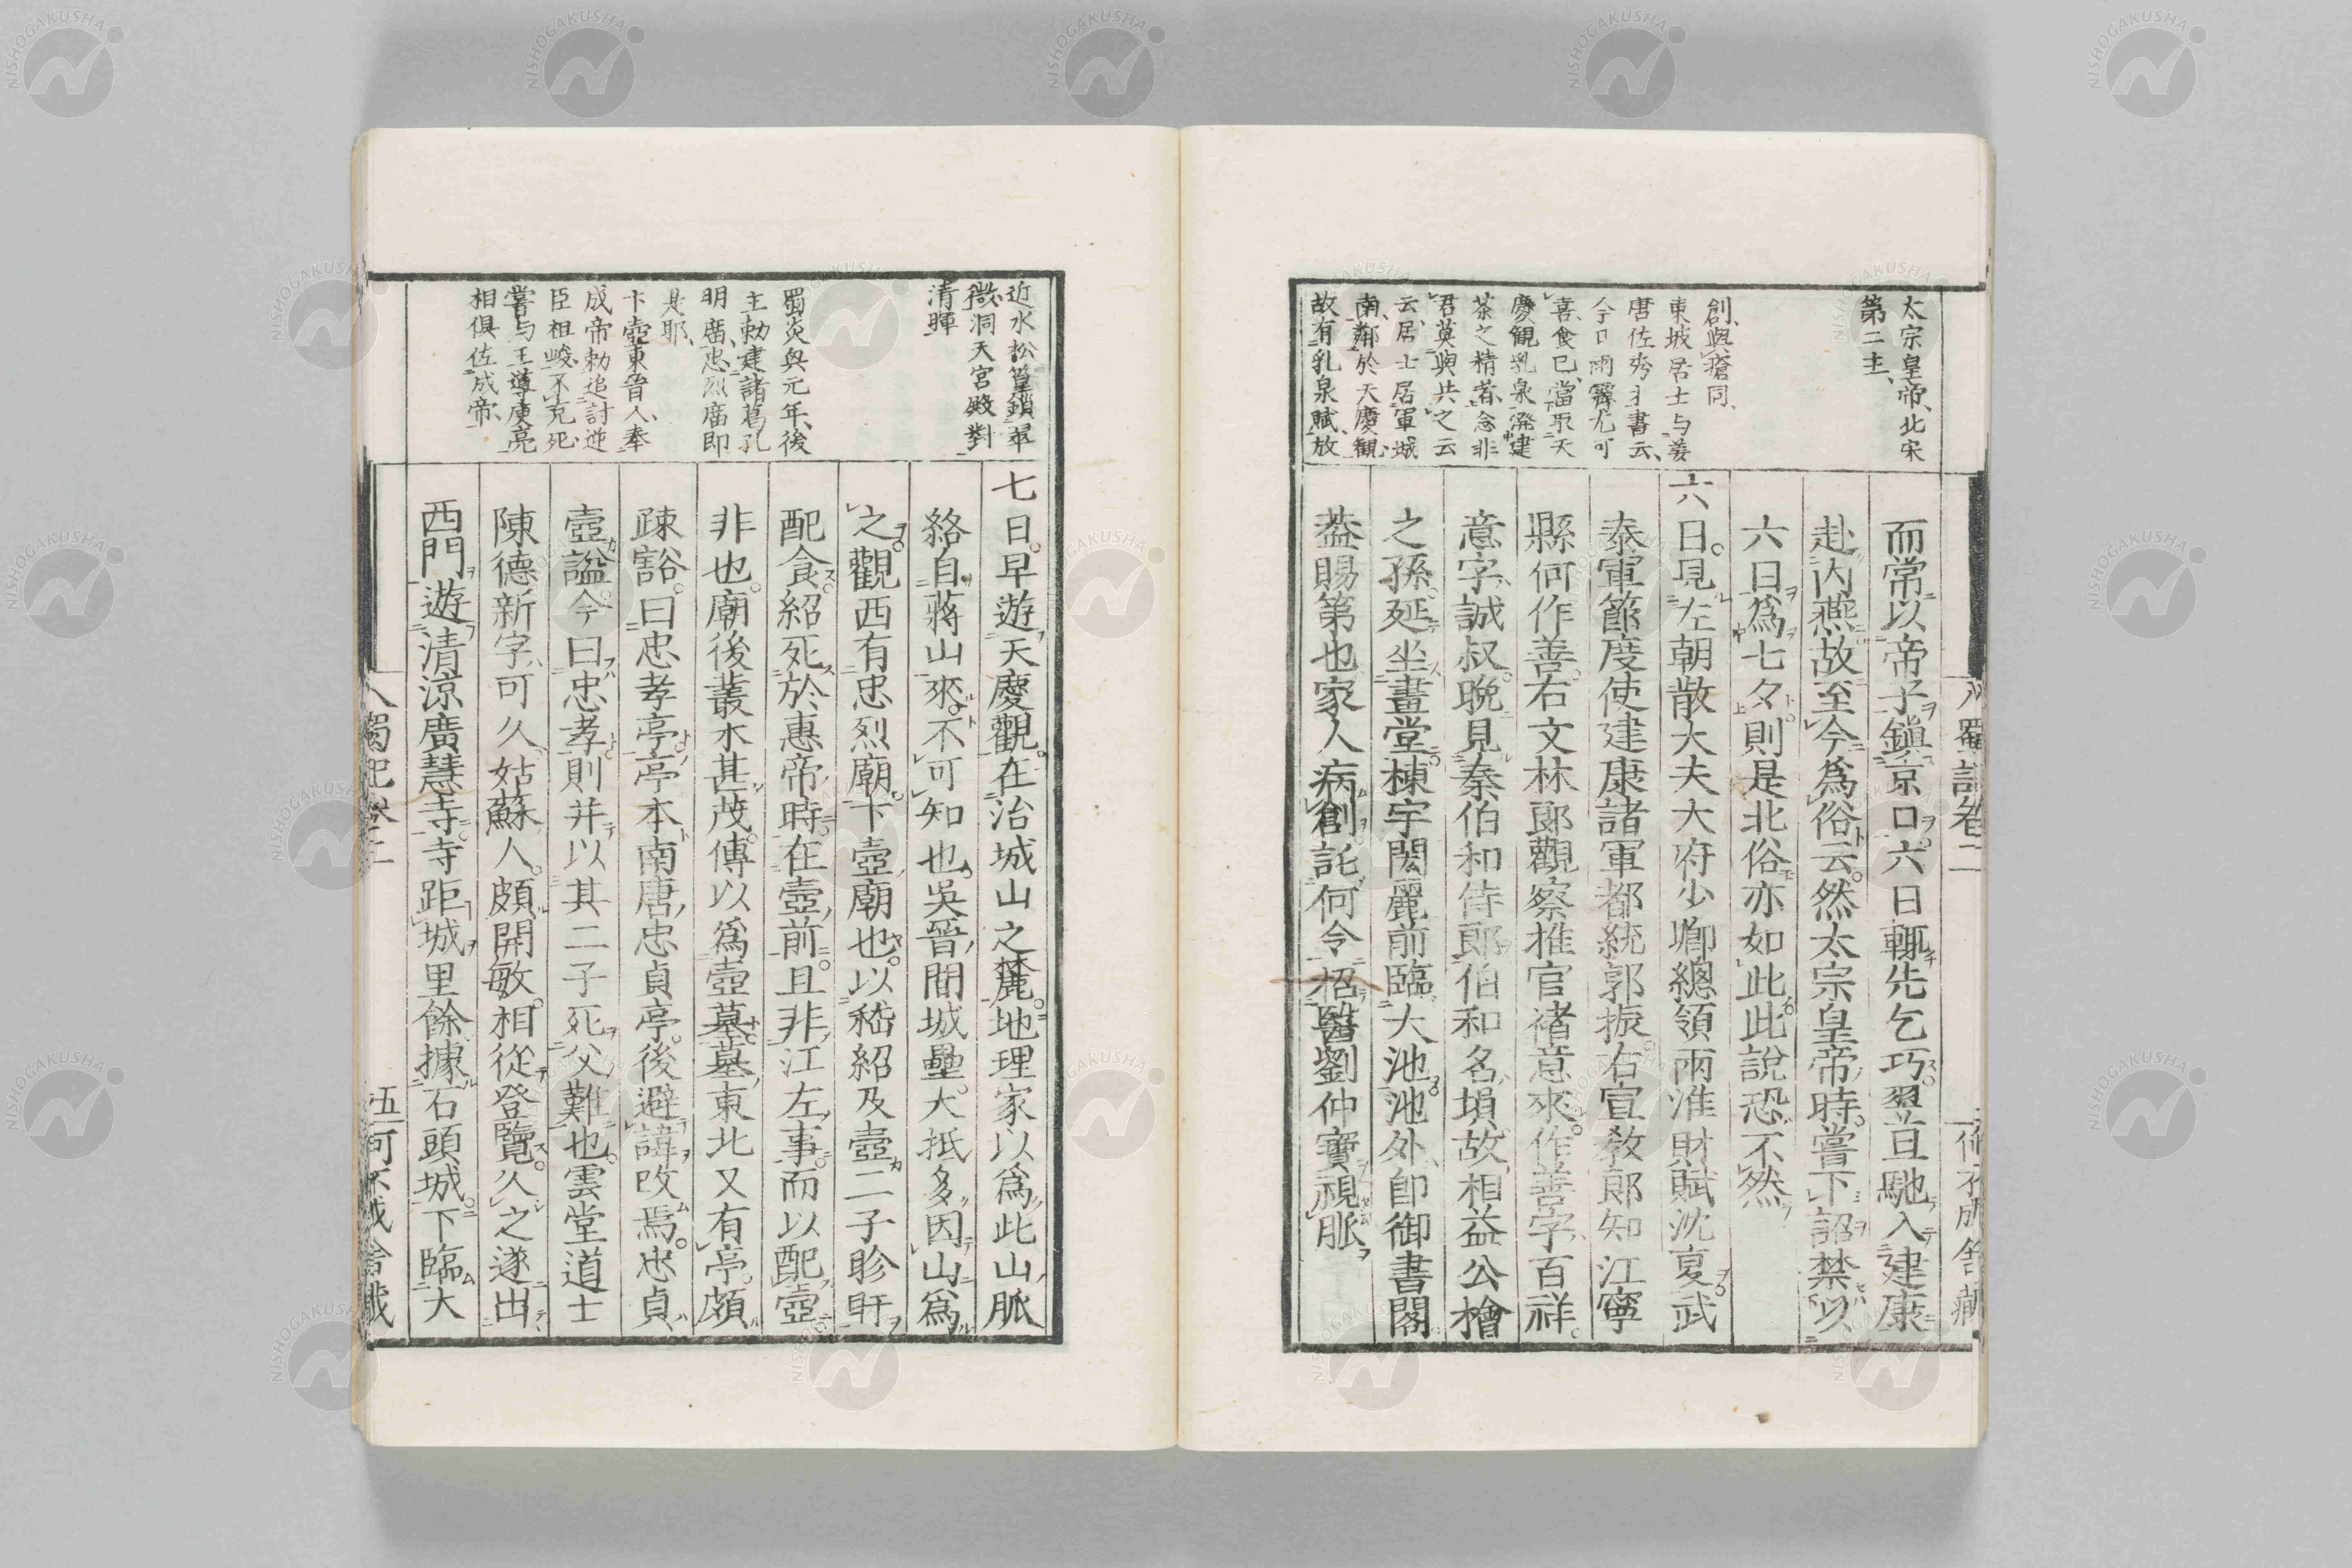 太宗皇帝、北宋
第二主、
創與瘡同、
東坡居士与姜
唐佐秀才書云、
今日雨霽尤可
喜、食已、當取天
慶觀乳泉潑建
茶之精者、念非
君莫與共之云
云、居士居軍城
南、鄰於天慶觀、
故有乳泉賦、放
而常以帝子鎮京口。六日輙先乞巧。翌旦馳入建康
赴内燕。故至今爲俗云。然太宗皇帝時。嘗下詔禁以
六日爲七夕。則是北俗亦如此。此說恐不然
六日。見左朝散大夫大府少卿總領兩淮財賦沈夏。武
泰軍節度使建康諸軍都統郭振。右宣敎郎知江寧
縣何作善。右文林郎觀察推官褚意來。作善字百祥。
意字誠叔。晩見秦伯和侍郎。伯和名塤。故相益公檜
之孫。延坐畫堂。棟宇閎麗。前臨大池。池外即御書閣
葢賜第也。家人病創。託何令招醫劉仲寶視脈
蜀記卷二
何不成舍藏
近水松篁鎖翠
微、洞天宮殿對
清暉
蜀炎與元年、後
主勅建諸葛孔
明廣、忠烈廣即
是耶、
卞壺東晉人、奉
成帝勅追討逆
臣祖峻、不克死、
嘗与王導庾亮
相俱佐成帝、
七日。早遊天慶觀。在治城山之麓。地理家以爲此山脈
絡自蔣山來。不可知也。吳晉間城壘。大抵多因山爲
之。觀西有忠烈廟。卞壺廟也。以嵇紹及壺二子眕盱
配食。紹死於惠帝時。在壺前。且非江左事。而以配壺
非也。廟後叢木甚茂。傳以爲壺墓。墓東北又有亭。頗
疎豁。曰忠孝亭。亭本南唐忠貞亭。後避諱改焉。忠貞
壺謚。今曰忠孝則并以其二子死父難也。雲堂道士
陳德新字可久。姑蘇人。頗開敏。相從登覽。久之遂出
西門遊清涼廣慧寺。寺距城里餘。據石頭城。下臨大
蜀記卷二
五
何不成舍藏